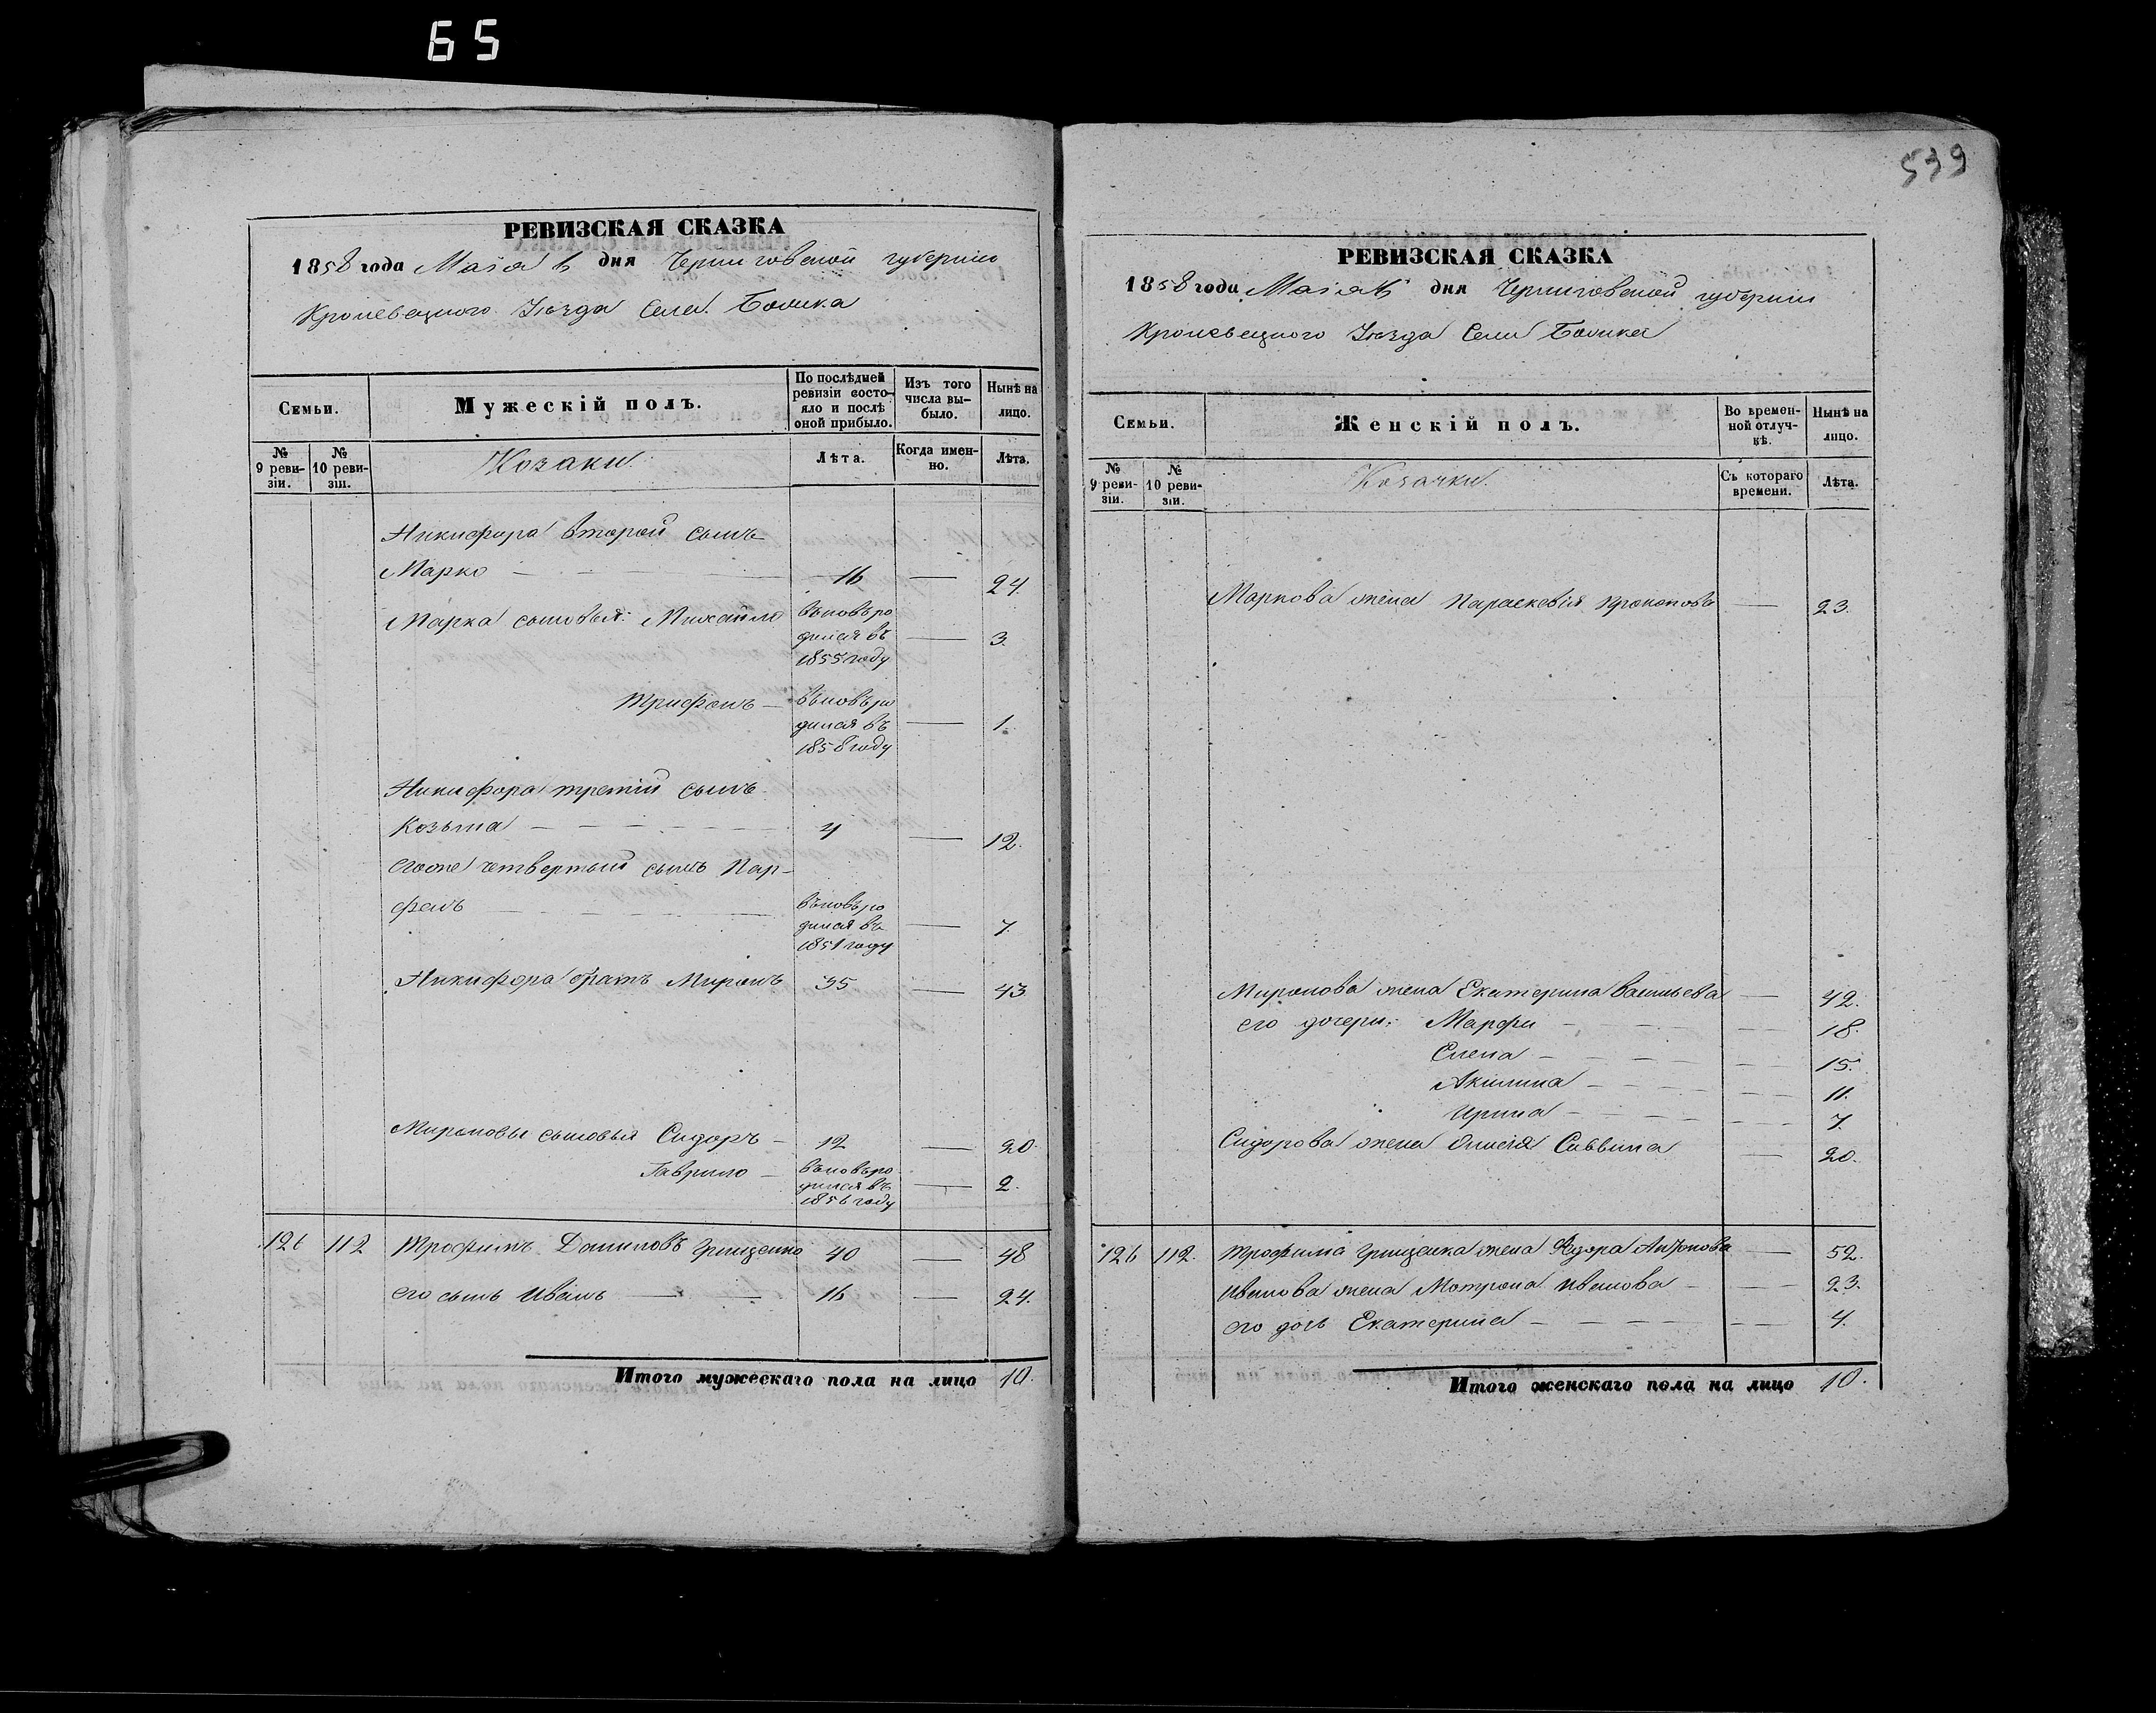 65
539
РЕВИЗСКАЯ СКАЗКА
1858 года Маія 6 дня Черниговской губерніи
Кролевецкого Уезда Села
Семьи.
Мужескій полъ.
По послѣдней ревизіи состояло и послѣ оной прибыло.
Изъ того числа выбыло.
Нынѣ на лицо.
№ 9 ревизіи.
№ 10 ревизіи.
Козаки.
Лѣта.
Когда именно.
Лѣта.
Никифора второй сынъ
Марко — 16 — 24.
Марка сыновья: Михайло вьновь родился въ 1855 году — 3.
Трифонъ — вьновь родился въ 1858 году — 1.
Никифора третій сынъ
Козьма — 4 — 12.
Егоже четвертый сынъ Пар-
фенъ — вьновь родился въ 1851 году — 7
Никифора братъ Миронъ 35 — 43
Мироновы сыновья Сидоръ — 12 — 20.
Гаврило — вьновь родился въ 1856 году — 2.
126 112 Трофимъ Даниловъ Грищенко 40 — 48
его сынъ Иванъ — 16 — 24.
Итого мужескаго пола на лицо 10.
РЕВИЗСКАЯ СКАЗКА
1858 года Маія 6 дня Черниговской губерніи
Кролевецкого Уезда Села
Семьи.
Женскій полъ.
Во временной отлучкѣ.
Нынѣ на лицо.
№ 9 ревизіи.
№ 10 ревизіи.
Козачки.
Съ котораго времени.
Лѣта.
Маркова жена Параскевія Прокопова — 23.
Миронова жена Екатерина Васильева — 42.
его дочери: Марфа — 18.
Елена — 15.
Акилина — 11.
Ирина — 7.
Сидорова жена Саввина — 20.
126 112. Трофима Грищенка жена Федора Антонова — 52.
Иванова жена Мотрона Иванова — 23.
его дочь Екатерина — 4.
Итого женскаго пола на лицо 10.